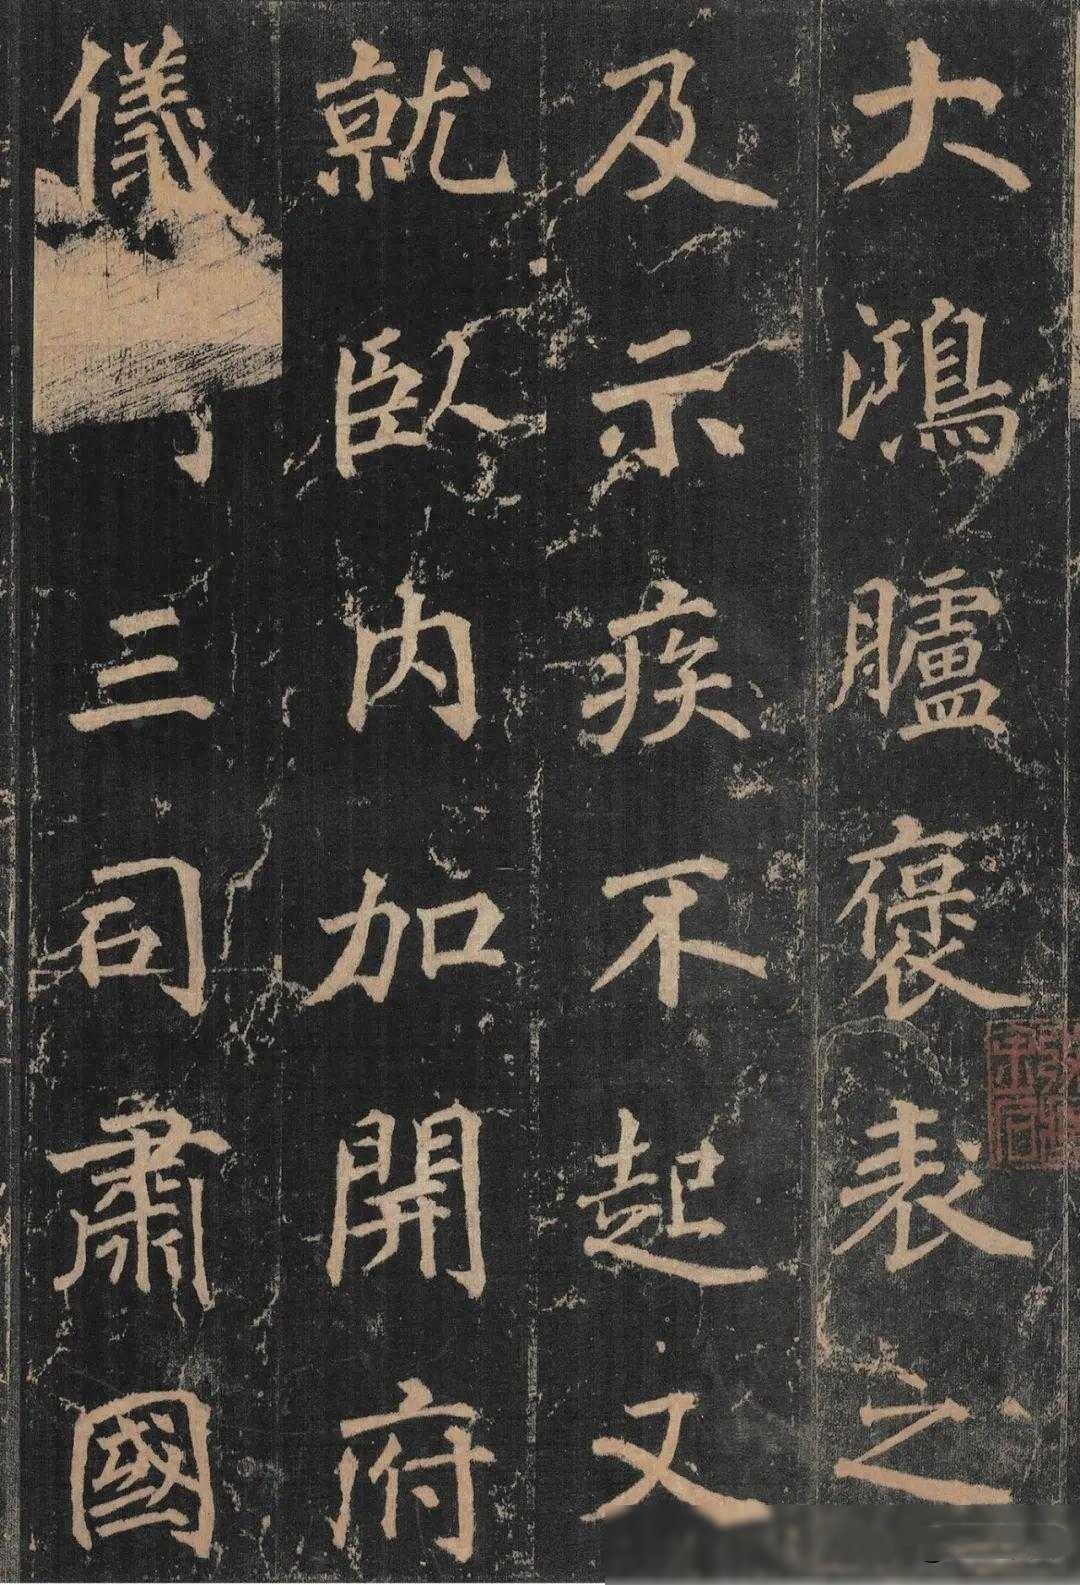 大鴻臚褒表之
及示疾不起又
就臥內加開府
儀三司肅國